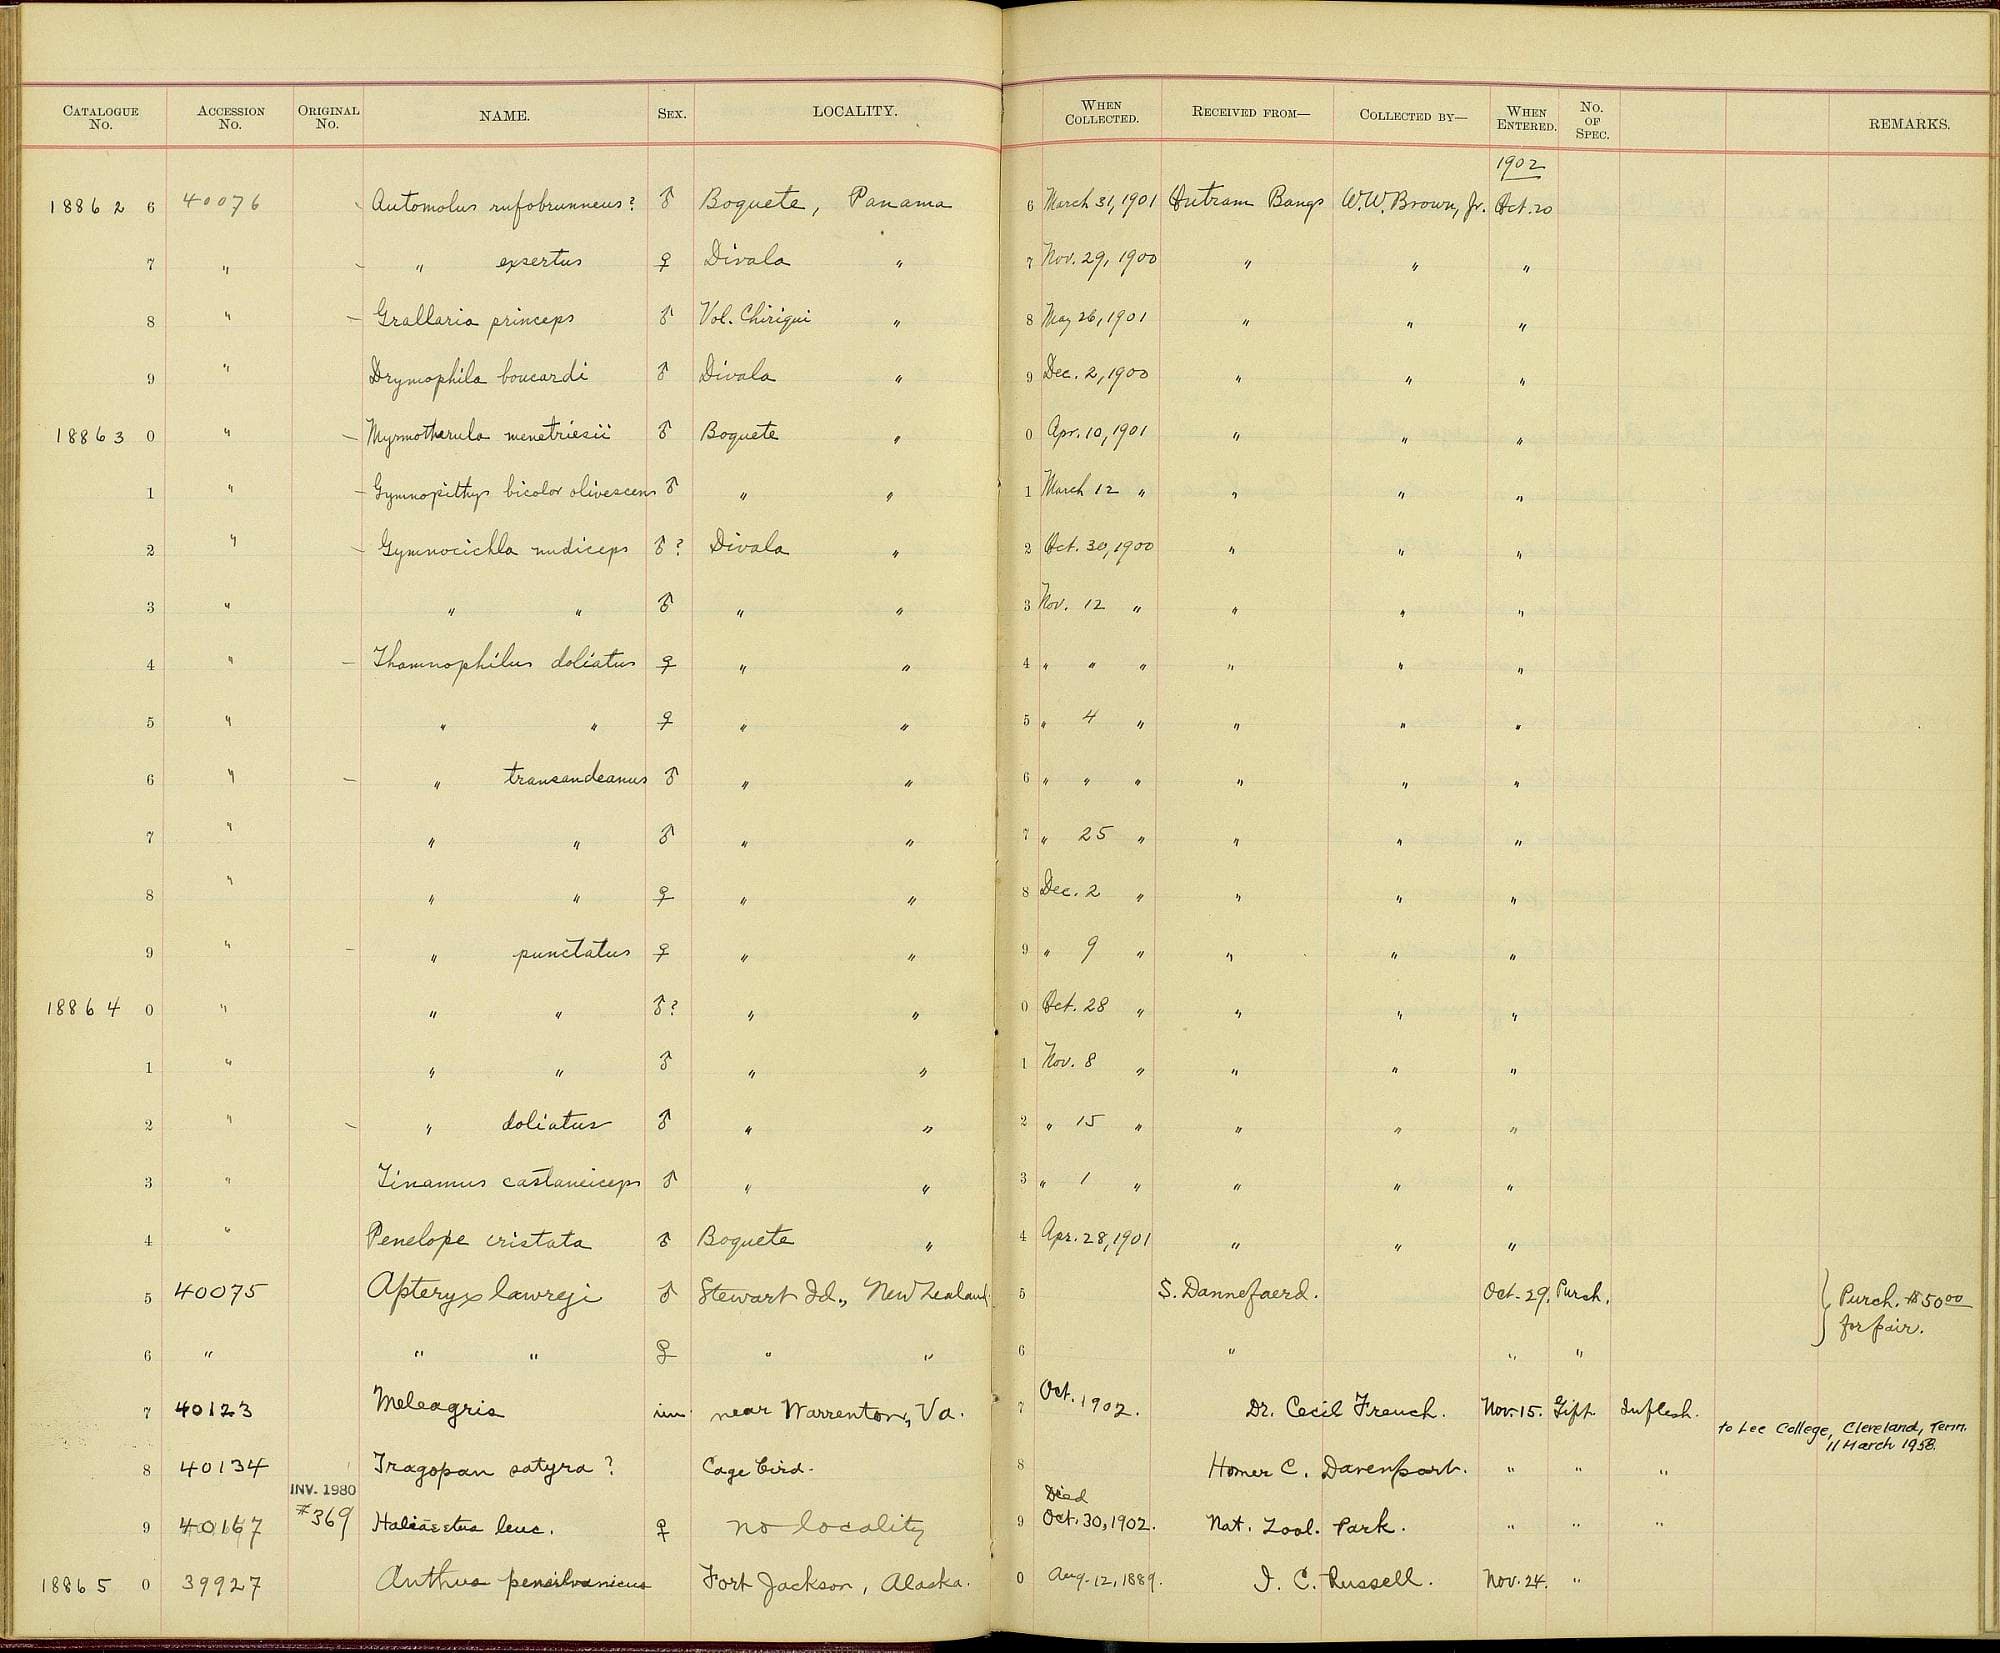 CATALOGUE No. ACCESSION No. ORIGINAL No. NAME. SEX. LOCALITY. WHEN COLLECTED. RECEIVED FROM— COLLECTED BY— WHEN ENTERED. No. OF SPEC. REMARKS.
1902
18862 6 40076 Automolus rufobrunneus? ♂ Boquete, Panama 6 March 31, 1901 Outram Bangs W.W. Brown, Jr. Oct. 20
7 " — " exsertus ♀ Divala " 7 Nov. 29, 1900 " " "
8 " — Grallaria princeps ♂ Vol. Chiriqui " 8 May 26, 1901 " " "
9 " Drymophila boucardi ♂ Divala " 9 Dec. 2, 1900 " " "
18863 0 " — Myrmotherula menetriesii ♂ Boquete " 0 Apr. 10, 1901 " " "
1 " — Gymnopithys bicolor olivescens ♂ " " 1 March 12 " " " "
2 " — Gymnocichla nudiceps ♂? Divala " 2 Oct. 30, 1900 " " "
3 " " " ♂ " " 3 Nov. 12 " " " "
4 " — Thamnophilus doliatus ♀ " " 4 " " " " " "
5 " " " ♀ " " 5 " 4 " " " "
6 " — " transandeanus ♂ " " 6 " " " " " "
7 " " " ♂ " " 7 " 25 " " " "
8 " " " ♀ " " 8 Dec. 2 " " " "
9 " — " punctatus ♀ " " 9 " 9 " " " "
18864 0 " " " ♂? " " 0 Oct. 28 " " " "
1 " " " ♂ " " 1 Nov. 8 " " " "
2 " — " doliatus ♂ " " 2 " 15 " " " "
3 " Tinamus castaneiceps ♂ " " 3 " 1 " " " "
4 " Penelope cristata ♂ Boquete " 4 Apr. 28, 1901 " " "
5 40075 Apteryx lawreyi ♂ Stewart Id., New Zealand. 5 S. Dannefaerd. Oct. 29. Purch. Purch. $50.00
for pair.
6 " " " ♀ " " 6 " " "
7 40123 Meleagris im near Warrenton, Va. 7 Oct. 1902. Dr. Cecil French. Nov. 15. Gift In flesh.
to Lee College, Cleveland, Tenn.
11 March 1958.
8 40134 Tragopan satyra? Cage bird. 8 Homer C. Davenport. " " "
INV. 1980 Died
9 40167 #369 Haliaeetus leuc. ♀ no locality 9 Oct. 30, 1902. Nat. Zool. Park. " " "
18865 0 39927 Anthus pensilvanicus Fort Jackson, Alaska. 0 Aug. 12, 1889. I. C. Russell. Nov. 24. "